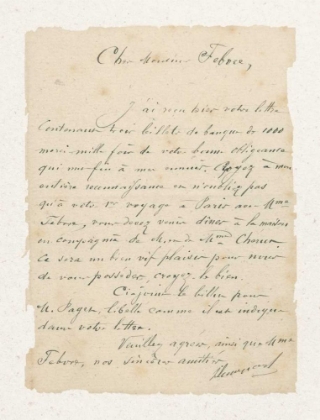 Cher Monsieur Febvre,
J'ai reçu hier votre lettre
contenant trois billets de banque de 1000
merci mille fois de votre bonne obligeance
qui me fin à me Croyez à mon
entière reconnaissance en n'oubliez pas
qu'à votre 1er voyage à Paris avec Mme
Febvre, vous devez venir dîner à la maison
en compagnie de M. et de Mme
Ce sera un bien vif plaisir pour nous
de vous posséder, croyez le bien.
Ci-joint le billet pour
M. Paget, libellé comme il est indiqué
dans votre lettre.
Veuillez agréer, ainsi que Mme
Febvre, nos sincères amitiés